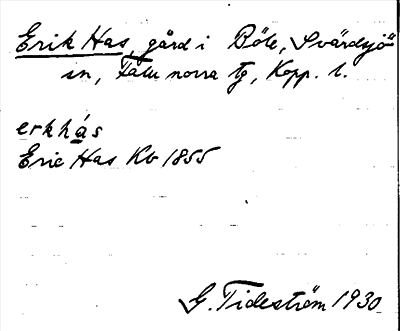 Erik Has, gård i Böle, Svärdsjö
sn, Falu norra tg, Kopp. l.
erkhás
Eric Has Kb 1855
G. Tideström 1930